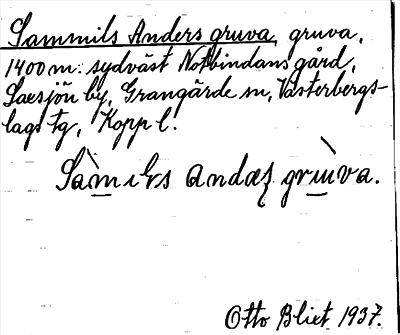 Sammils Anders gruva, gruva,
1400 m. sydväst Notbindans gård,
Saxsjön by, Grangärde sn, Västerbergs-
lags tg, Kopp l.
Sàmils andæʂ grùva.
Otto Blixt 1937.